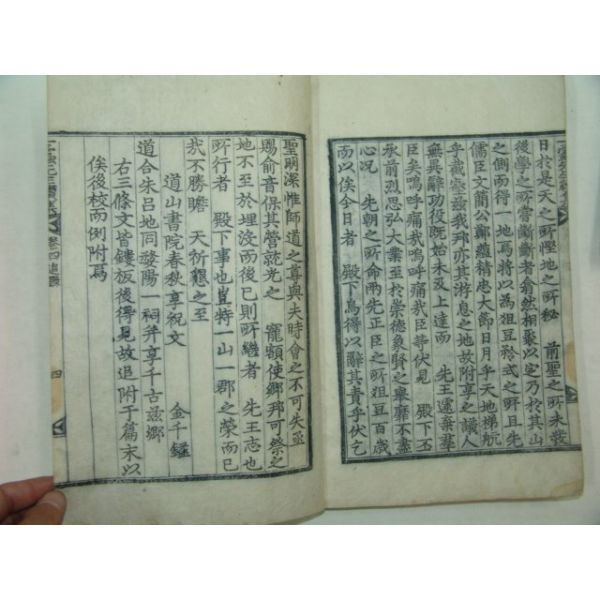 日於是天之所慳地之所秘 前聖之所未發
後學之所當斷斷者翕然相聚以定乃於其山
之側而得一地焉將以爲俎豆矜式之所且先
儒臣文蘭公鄭蘊精忠大節日月乎天地梯航
乎我 玆我邦亦其游息之地故附享之議人
無異辭功役旣始未及上達而 先王遽棄羣
臣矣嗚呼痛哉嗚呼痛哉臣等伏見 殿下丕
承前烈思弘大業至於崇德象賢之擧靡不盡
心况 先朝之所命兩先正臣之所俎豆百歲
而以俟今日者 殿下烏得以辭其責乎伏乞
聖明深惟師道之尊與夫時會之不可失亟
賜俞音保其營就光之 寵額使鄕邦可祭之
地不至於埋沒而後已則所繼者 先王志也
所行者 殿下事也豈特一山一郡之榮而已
我不勝瞻 天祈懇之至
道山書院春秋享祝文 金千鎰
道合朱呂地同 陽一祠并享千古玆鄕
右三條文皆鏤板後得見故追附于篇末以
俟後校而例附焉
卷四
四